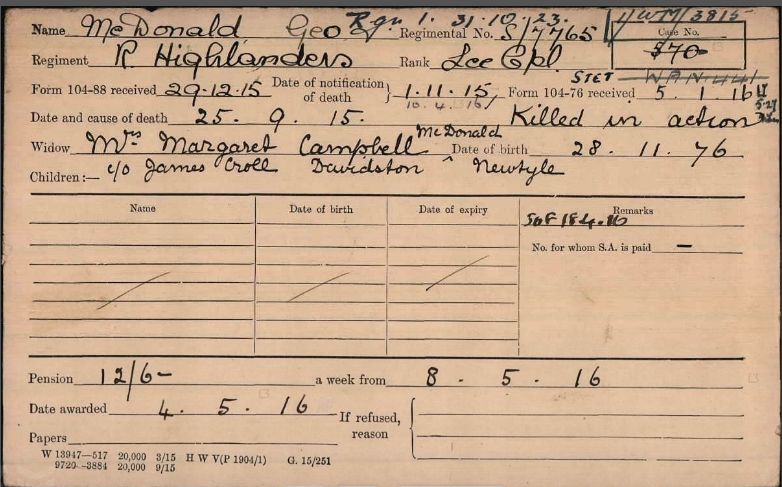 Rgn 1. 31.10.23. 11WM/3815
Name McDonald Geo Regimental No. S/7765 Case No.
870
Regiment R Highlanders Rank Lce Cpl
STET
Form 104-88 received 29.12.15 Date of notification of death } 1.11.15, Form 104-76 received 5.1.16
10.4.16
Date and cause of death 25. 9. 15. Killed in action
McDonald
Widow Mrs Margaret Campbell ^ Date of birth 28. 11. 76
Children:— c/o James Croll Davidston Newtyle
Name Date of birth Date of expiry Remarks
SOF 18.4.16
No. for whom S.A. is paid —
Pension 12/6- a week from 8. 5. 16
Date awarded 4. 5. 16 If refused, reason {
Papers
W 13947—517 20,000 3/15 H W V(P 1904/1) G. 15/251
9720—3884 20,000 9/15